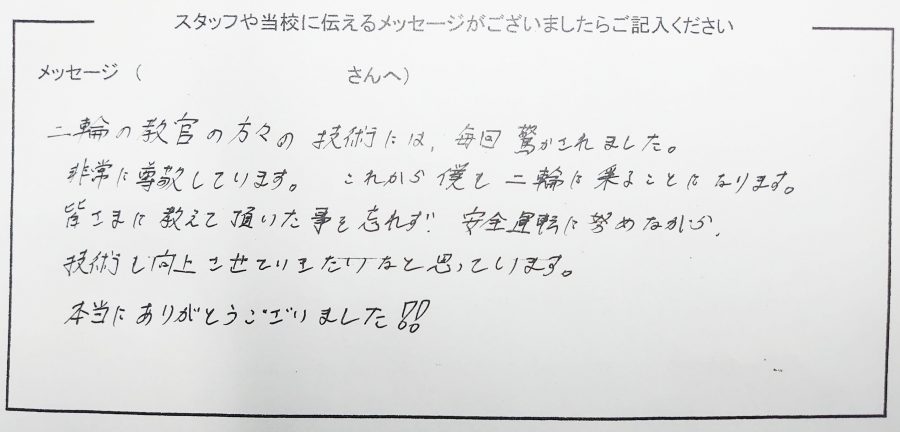 スタッフや当校に伝えるメッセージがございましたらご記入ください
メッセージ（　　　　　　　　　　さんへ）
二輪の教官の方々の技術には、毎回驚かされました。
非常に尊敬しています。 これから僕も二輪に乗ることになります。
皆さまに教えて頂いた事を忘れず、安全運転に努めながら、
技術も向上させていきたいなと思っています。
本当にありがとうございました!!